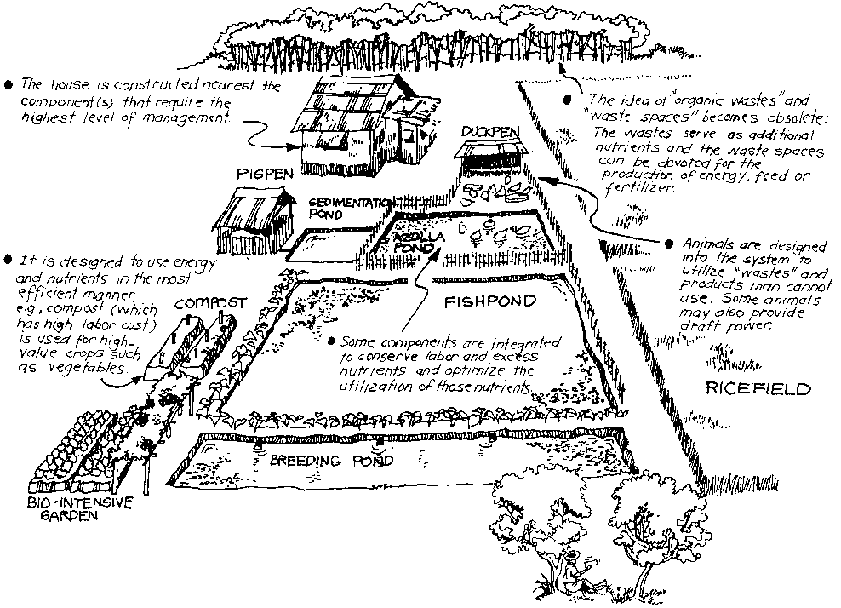 • The house is constructed nearest the
component(s) that require the
highest level of management.
• The idea of "organic wastes" and
"waste spaces" becomes obsolete:
The wastes serve as additional
nutrients and the waste spaces
can be devoted for the
production of energy, feed or
fertilizer.
DUCKPEN
PIGPEN
SEDIMENTATION
POND
AZOLLA
POND
• Animals are designed
into the system to
utilize "wastes" and
products man cannot
use. Some animals
may also provide
draft power.
• It is designed to use energy
and nutrients in the most
efficient manner
e.g., compost (which
has high labor cost)
is used for high-
value crops such
as vegetables.
COMPOST
FISHPOND
• Some components are integrated
to conserve labor and excess
nutrients and optimize the
utilization of those nutrients.
RICEFIELD
BREEDING POND
BIO-INTENSIVE
GARDEN